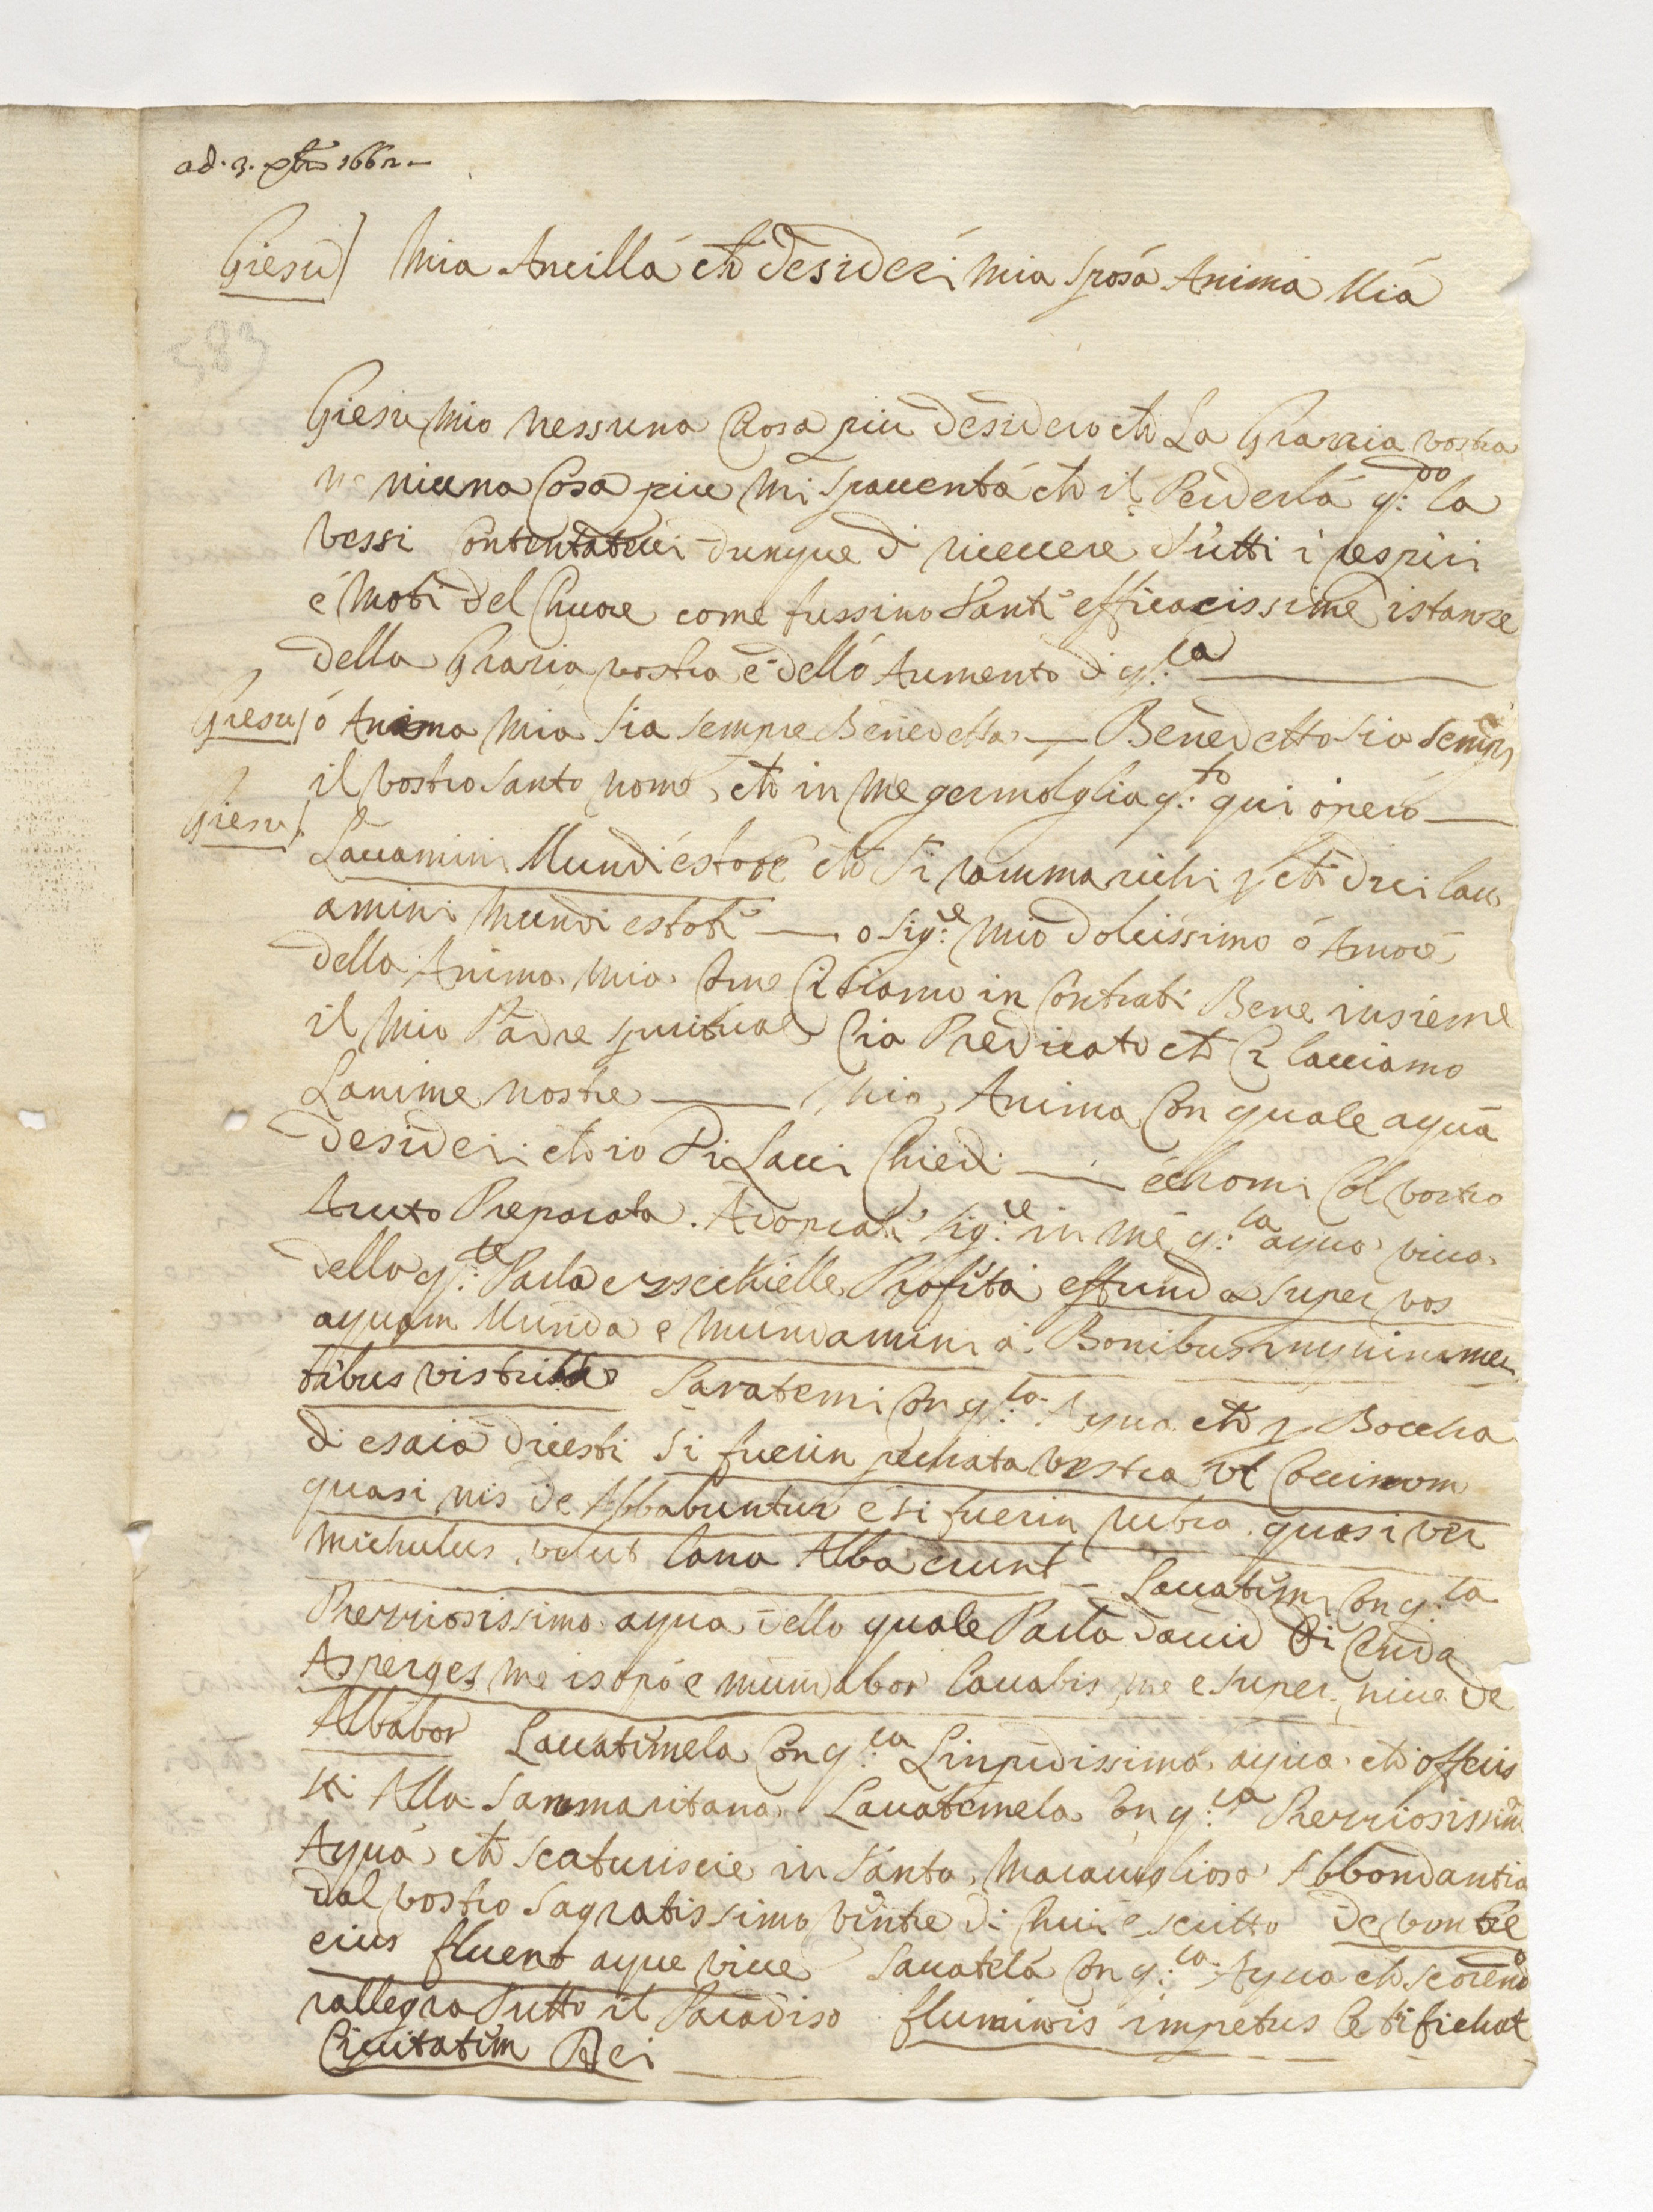 ad. 3. xbre 1662 –
Giesu) Mia Ancilla che desideri mia sposa Anima Mia
583
Giesu mio nessuna Cosa piu desidero che La Grazzia vostra
ne niuna Cosa piu mi spauenta che il Perderla q:do la
vessi Contentateui dunque di riceuere tutti i respiri
e moti del Chuore come fussino tanti efficacissime istanze
della Grazia vostra e dello Aumento di q:ta
Giesu) o Anima mia sia sempre Benedetta — Benedetto sia sempre
il vostro santo nome, che in me germolglia q:to qui opero —
Giesu) Lauamini Mundi estote che ti rammarichi p che dici lau
amini mundi estoti — o sig:re mio dolcissimo o Amore
della Anima mia Come Ci siamo in Contrati Bene insieme
il mio Padre spirituale Cia Predicato che Ci lauiamo
Lanime nostre — Mia Anima Con quale aqua
desideri che io Ti Laui Chiedi — echomi Col vostro
Aiuto Preparata. Adoprati sig:re in me q:la aqua viua
della q:le Parla ezzechielle Profita effunda super vos
aquam Munda e mundamini a Bonibus inquinamen
tibus vistris Lavatemi Con q:la Aqua che p Boccha
di esaia dicesti si fuerin pechata vestra ut Coccinum
quasi nis de Abbabuntur e si fuerin rubra quasi ver
michulus velut lana Alba erunt – Lauatimi Con q:la
Prezziosissima aqua della quale Parla Dauid
Asperges me isopo e mundabor lauabis me e super niue de
Albabor Lauatimela Con q:la Linpidissima aqua che offeris
ti Alla Sammaritana Lauatemela Con q:la Prezziosissima
Aqua che scaturiscie in tanta marauigliosa Abbondantia
dal vostro sagratissimo vintre di Chui e scritto de ventre
eius fluent aque viue Lauatela Con q:la Aqua che scorendo
rallegra tutto il Paradiso fluminis impetus letifichat
Ciuitatim Dei